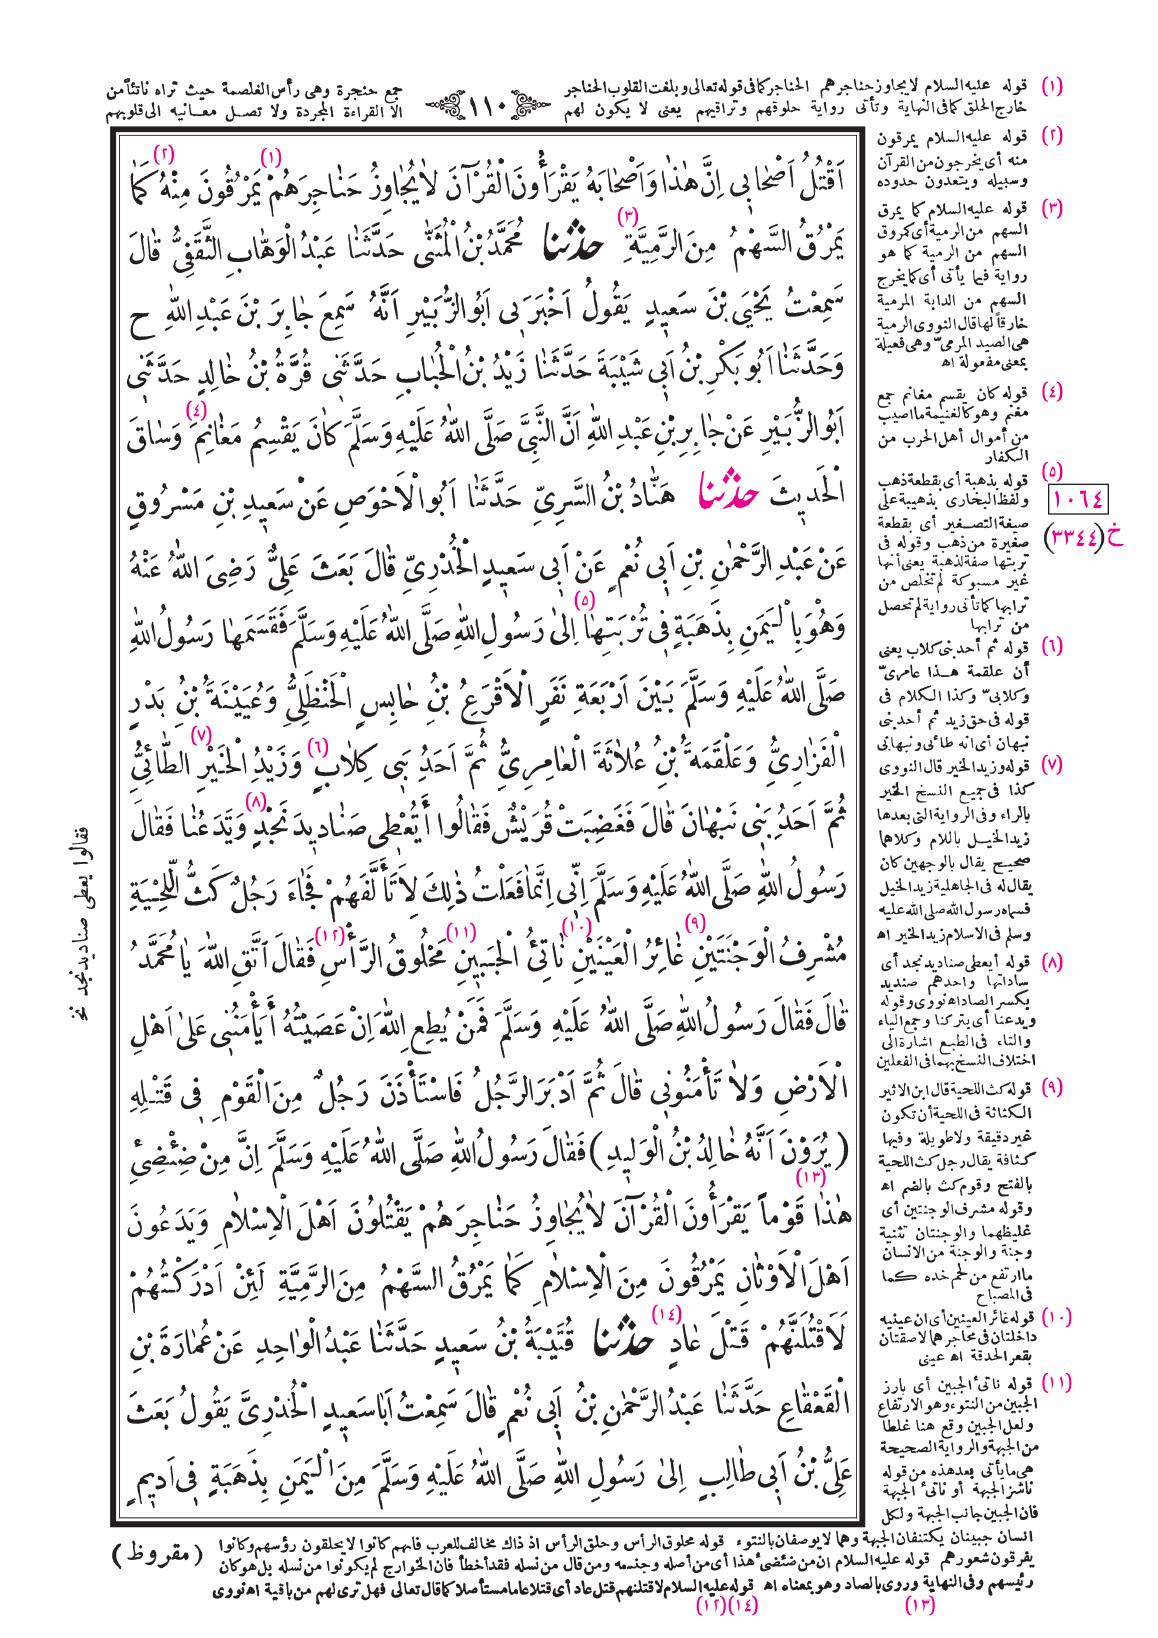 (١) قوله عليه السلام لا يجاوز حناجرهم الحناجر كما فى قوله تعالى وبلغت القلوب الحناجر
جمع حنجرة وهى رأس الغلصمة حيث تراه ناتئا من
خارج الحلق كما فى النهاية وتأتى رواية حلوقهم وتراقيهم يعنى لا يكون لهم
الا القراءة المجردة ولا تصل معانيه الى قلوبهم
١١٠
اَقْتُلُ اَصْحَابِى اِنَّ هٰذَا وَاَصْحَابَهُ يَقْرَأُونَ الْقُرْآنَ لَا يُجَاوِزُ حَنَاجِرَهُمْ (١) يَمْرُقُونَ مِنْهُ (٢) كَمَا
يَمْرُقُ السَّهْمُ مِنَ الرَّمِيَّةِ (٣) حدثنا مُحَمَّدُ بْنُ الْمُثَنّٰى حَدَّثَنَا عَبْدُ الْوَهَّابِ الثَّقَفِىُّ قَالَ
سَمِعْتُ يَحْيَى بْنَ سَعِيدٍ يَقُولُ اَخْبَرَنِى اَبُو الزُّبَيْرِ اَنَّهُ سَمِعَ جَابِرَ بْنَ عَبْدِ اللّٰهِ ح
وَحَدَّثَنَا اَبُو بَكْرِ بْنُ اَبِى شَيْبَةَ حَدَّثَنَا زَيْدُ بْنُ الْحُبَابِ حَدَّثَنِى قُرَّةُ بْنُ خَالِدٍ حَدَّثَنِى
اَبُو الزُّبَيْرِ عَنْ جَابِرِ بْنِ عَبْدِ اللّٰهِ اَنَّ النَّبِىَّ صَلَّى اللّٰهُ عَلَيْهِ وَسَلَّمَ كَانَ يَقْسِمُ مَغَانِمَ (٤) وَسَاقَ
الْحَدِيثَ حدثنا هَنَّادُ بْنُ السَّرِىِّ حَدَّثَنَا اَبُو الْاَحْوَصِ عَنْ سَعِيدِ بْنِ مَسْرُوقٍ
عَنْ عَبْدِ الرَّحْمٰنِ بْنِ اَبِى نُعْمٍ عَنْ اَبِى سَعِيدٍ الْخُدْرِىِّ قَالَ بَعَثَ عَلِىٌّ رَضِىَ اللّٰهُ عَنْهُ
وَهُوَ بِالْيَمَنِ بِذَهَبَةٍ فِى تُرْبَتِهَا (٥) اِلٰى رَسُولِ اللّٰهِ صَلَّى اللّٰهُ عَلَيْهِ وَسَلَّمَ فَقَسَمَهَا رَسُولُ اللّٰهِ
صَلَّى اللّٰهُ عَلَيْهِ وَسَلَّمَ بَيْنَ اَرْبَعَةِ نَفَرٍ الْاَقْرَعِ بْنُ حَابِسٍ الْحَنْظَلِىُّ وَعُيَيْنَةَ بْنُ بَدْرٍ
الْفَزَارِىِّ وَعَلْقَمَةَ بْنُ عُلَاثَةَ الْعَامِرِىُّ ثُمَّ اَحَدُ بَنِى كِلَابٍ (٦) وَزَيْدُ الْخَيْرِ (٧) الطَّائِىُّ
ثُمَّ اَحَدُ بَنِى نَبْهَانَ قَالَ فَغَضِبَتْ قُرَيْشٌ فَقَالُوا أَتُعْطِى صَنَادِيدَ نَجْدٍ (٨) وَتَدَعُنَا فَقَالَ
رَسُولُ اللّٰهِ صَلَّى اللّٰهُ عَلَيْهِ وَسَلَّمَ اِنِّى اِنَّمَا فَعَلْتُ ذٰلِكَ لِاَتَأَلَّفَهُمْ فَجَاءَ رَجُلٌ كَثُّ اللِّحْيَةِ
مُشْرِفُ الْوَجْنَتَيْنِ (٩) غَائِرُ الْعَيْنَيْنِ (١٠) نَاتِئُ الْجَبِينِ (١١) مَحْلُوقُ الرَّأْسِ (١٢) فَقَالَ اتَّقِ اللّٰهَ يَا مُحَمَّدُ
قَالَ فَقَالَ رَسُولُ اللّٰهِ صَلَّى اللّٰهُ عَلَيْهِ وَسَلَّمَ فَمَنْ يُطِعِ اللّٰهَ اِنْ عَصَيْتُهُ أَيَأْمَنُنِى عَلٰى اَهْلِ
الْاَرْضِ وَلَا تَأْمَنُونِى قَالَ ثُمَّ اَدْبَرَ الرَّجُلُ فَاسْتَأْذَنَ رَجُلٌ مِنَ الْقَوْمِ فِى قَتْلِهِ
(يُرَوْنَ اَنَّهُ خَالِدُ بْنُ الْوَلِيدِ) فَقَالَ رَسُولُ اللّٰهِ صَلَّى اللّٰهُ عَلَيْهِ وَسَلَّمَ اِنَّ مِنْ ضِئْضِئِ
هٰذَا (١٣) قَوْماً يَقْرَأُونَ الْقُرْآنَ لَا يُجَاوِزُ حَنَاجِرَهُمْ يَقْتُلُونَ اَهْلَ الْاِسْلَامِ وَيَدَعُونَ
اَهْلَ الْاَوْثَانِ يَمْرُقُونَ مِنَ الْاِسْلَامِ كَمَا يَمْرُقُ السَّهْمُ مِنَ الرَّمِيَّةِ لَئِنْ اَدْرَكْتُهُمْ
لَاَقْتُلَنَّهُمْ قَتْلَ عَادٍ (١٤) حدثنا قُتَيْبَةُ بْنُ سَعِيدٍ حَدَّثَنَا عَبْدُ الْوَاحِدِ عَنْ عُمَارَةَ بْنِ
الْقَعْقَاعِ حَدَّثَنَا عَبْدُ الرَّحْمٰنِ بْنُ اَبِى نُعْمٍ قَالَ سَمِعْتُ اَبَا سَعِيدٍ الْخُدْرِىَّ يَقُولُ بَعَثَ
عَلِىُّ بْنُ اَبِى طَالِبٍ اِلٰى رَسُولِ اللّٰهِ صَلَّى اللّٰهُ عَلَيْهِ وَسَلَّمَ مِنَ الْيَمَنِ بِذَهَبَةٍ فِى اَدِيمٍ
(٢) قوله عليه السلام يمرقون
منه أى يخرجون من القرآن
وسبيله ويتعدون حدوده
(٣) قوله عليه السلام كما يمرق
السهم من الرمية أى كمروق
السهم من الرمية كما هو
رواية فيما يأتى أى كما يخرج
السهم من الدابة المرمية
خارقاً لها قال النووى الرمية
هى الصيد المرمىّ وهى فعيلة
بمعنى مفعولة اه
(٤) قوله كان يقسم مغانم جمع
مغنم وهو كالغنيمة ما اصيب
من أموال أهل الحرب من
الكفار
(٥) قوله بذهبة أى بقطعة ذهب
ولفظ البخارى بذهيبة على
صيغة التصغير أى بقطعة
صغيرة من ذهب وقوله فى
تربتها صفة لذهبة يعنى أنها
غير مسبوكة لم تخلص من
ترابها كما تأتى رواية لم تحصل
من ترابها
١٠٦٤
خ (٣٣٤٤)
(٦) قوله ثم أحد بنى كلاب يعنى
أن علقمة هذا عامرىّ
وكلابىّ وكذا الكلام فى
قوله فى حق زيد ثم أحد بنى
نبهان أى انه طائى ونبهانى
(٧) قوله وزيد الخير قال النووى
كذا فى جميع النسخ الخير
بالراء وفى الرواية التى بعدها
زيد الخيل باللام وكلاهما
صحيح يقال بالوجهين كان
يقال له فى الجاهلية زيد الخيل
فسماه رسول الله صلى الله عليه
وسلم فى الاسلام زيد الخير اه
(٨) قوله أيعطى صناديد نجد أى
ساداتها واحدهم صنديد
بكسر الصاد اه نووى وقوله
ويدعنا أى يتركنا وجمع الياء
والتاء فى الطبع اشارة الى
اختلاف النسخ بهما فى الفعلين
(٩) قوله كث اللحية قال ابن الاثير
الكثاثة فى اللحية أن تكون
غير دقيقة ولا طويلة وفيها
كثافة يقال رجل كث اللحية
بالفتح وقوم كث بالضم اه
وقوله مشرف الوجنتين أى
غليظهما والوجنتان تثنية
وجنة والوجنة من الانسان
ما ارتفع من لحم خده كما
فى المصباح
(١٠) قوله غائر العينين أى ان عينيه
داخلتان فى محاجرهما لاصقتان
بقعر الحدقة اه عينى
(١١) قوله ناتئ الجبين أى بارز
الجبين من النتوء وهو الارتفاع
ولعل الجبين وقع هنا غلطا
من الجبهة والرواية الصحيحة
هى ما يأتى بعد هذه من قوله
ناشز الجبهة أو ناتئ الجبهة
فان الجبين جانب الجبهة ولكل
فقالوا يعطى صناديد نجد نخ
انسان جبينان يكتنفان الجبهة وهما لا يوصفان بالنتوء قوله محلوق الرأس وحلق الرأس اذ ذاك مخالف للعرب فانهم كانوا لا يحلقون رؤسهم وكانوا (مقروظ)
يفرقون شعورهم قوله عليه السلام ان من ضئضئ هذا أى من أصله وجنسه ومن قال من نسله فقد أخطأ فان الخوارج لم يكونوا من نسله بل هو كان
رئيسهم وفى النهاية وروى بالصاد وهو بمعناه اه قوله عليه السلام لاقتلنهم قتل عاد أى قتلا عاما مستأصلا كما قال تعالى فهل ترى لهم من باقية اه نووى
(١٣) (١٤)(١٢)